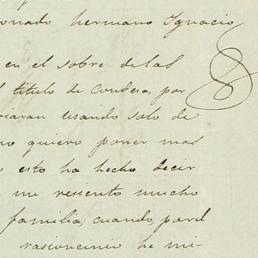 onado hermano Ignacio
en el sobre de las
l título de Condesa, por
iaran usando solo de
no quiero poner mas
o esto ha hecho decir
me resiento mucho
familia, cuando, por el
rasconcinio he mi-